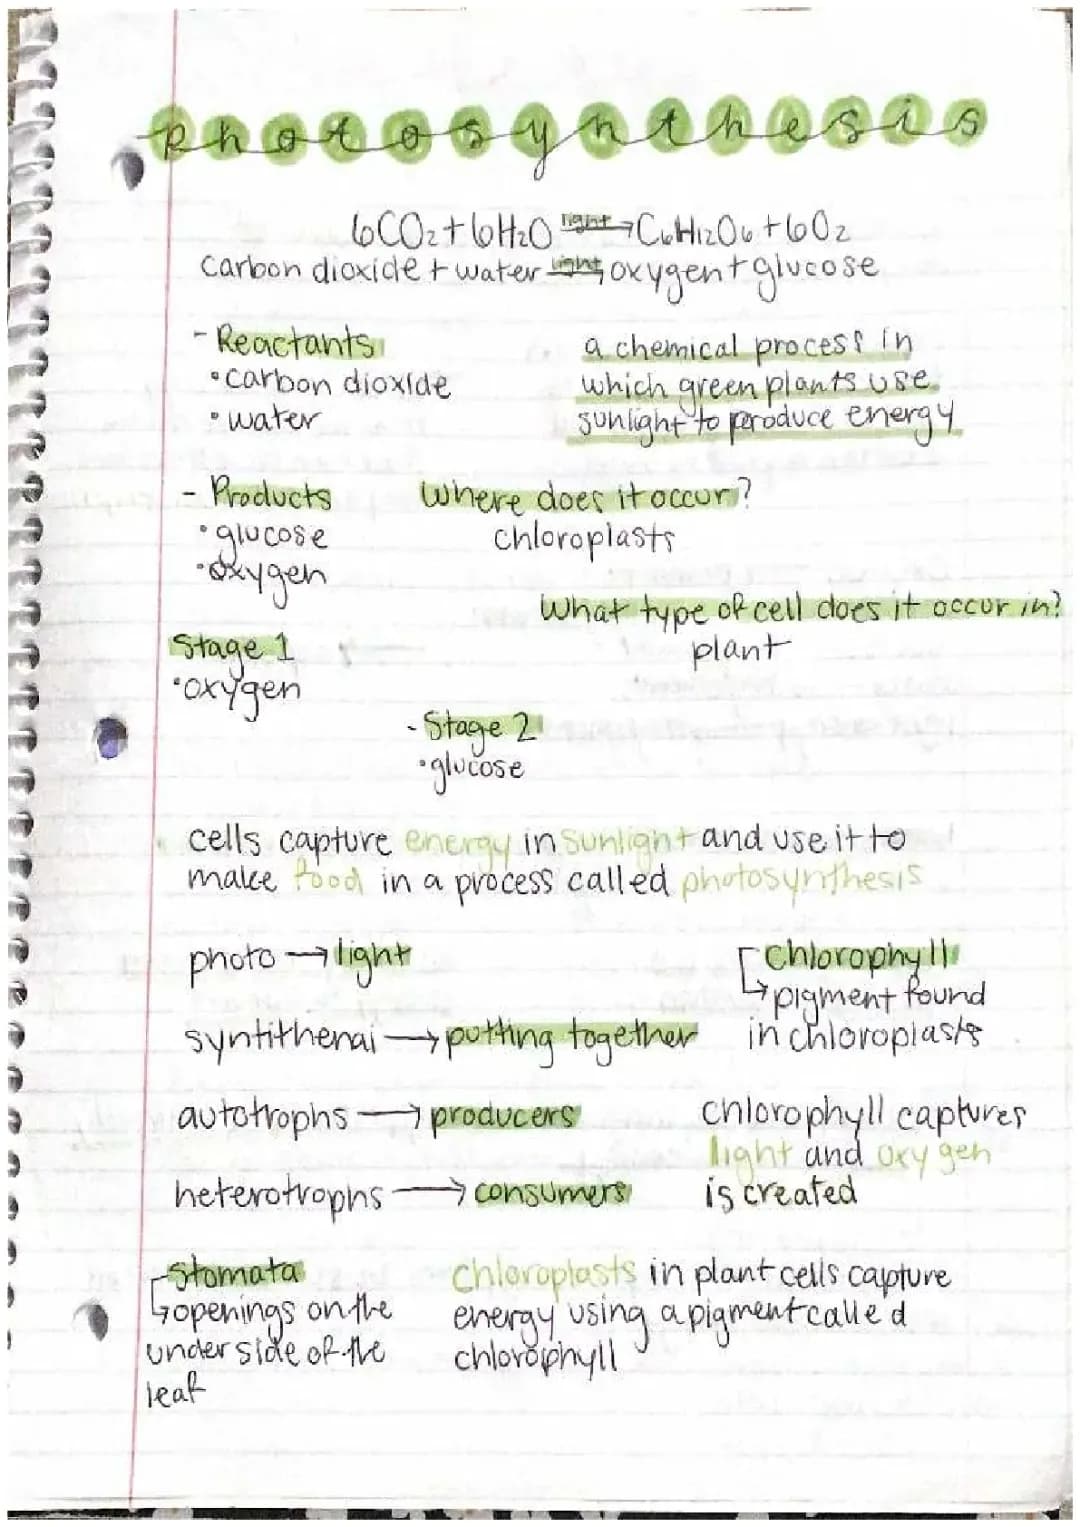 Photosynthesis
6CO2 + 6H2O light→ C6H12O6 + 6O2
carbon dioxide + water light→ oxygen + glucose
- Reactants
•carbon dioxide
•water
a chemical process in
which green plants use
sunlight to produce energy
- Products
•glucose
•oxygen
Where does it occur?
chloroplasts
What type of cell does it occur in?
plant
Stage 1
•oxygen
- Stage 2
•glucose
cells capture energy in sunlight and use it to
make food in a process called photosynthesis
photo → light
Chlorophyll
↳ pigment found
in chloroplasts
syntithenai → putting together
autotrophs → producers
heterotrophs → consumers
chlorophyll captures
light and oxygen
is created
Stomata
↳ openings on the
underside of the
leaf
Chloroplasts in plant cells capture
energy using a pigment called
chlorophyll